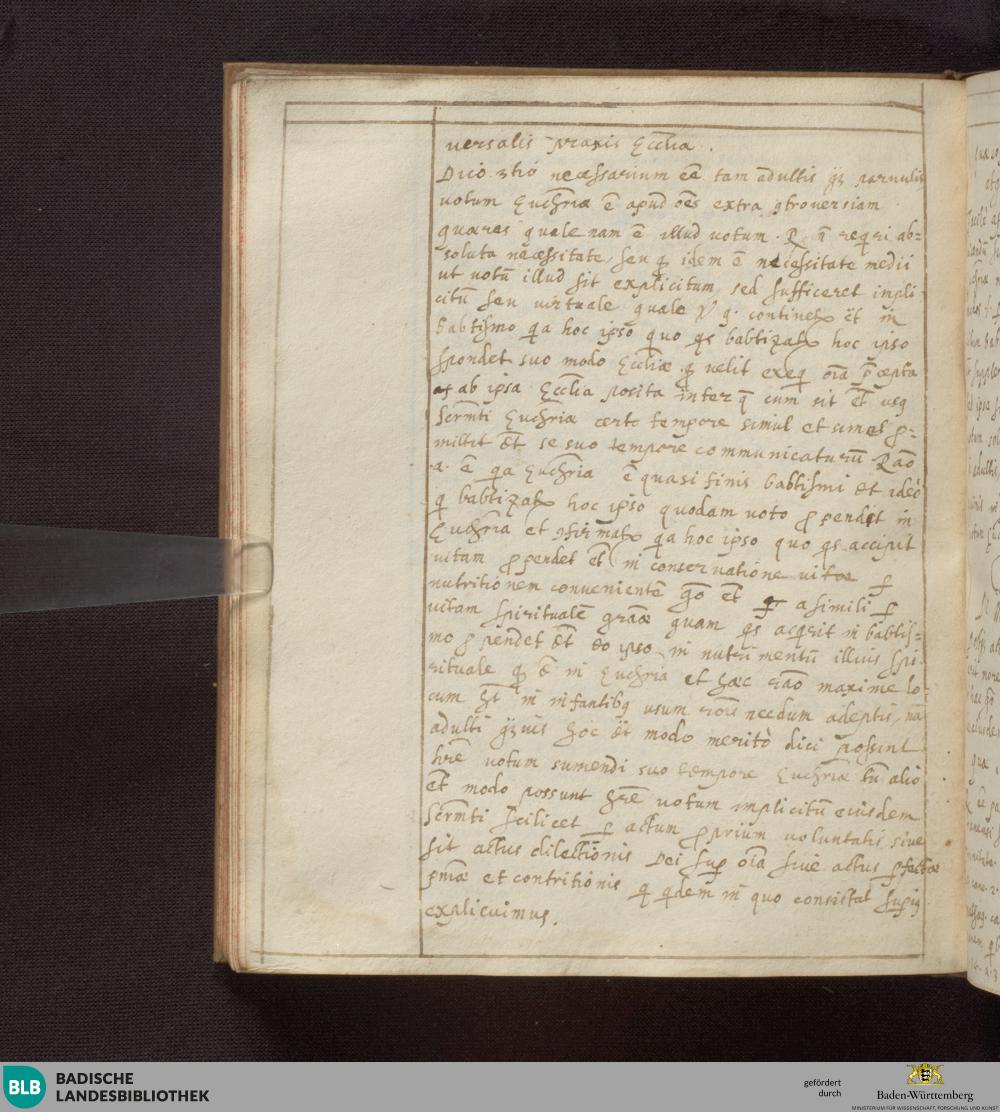 versalis praxis Ecclia.
Dico 3tio necessarium eē tam adultis qz parvulis
votum Euchriæ ē apud oēs extra 9troversiam
quæres quale nam ē illud votum. R. n̄ reqri ab=
soluta necessitate, seu q idem ē necessitate medii
ut votū illud sit explicitum, sed sufficeret impli
citū seu virtuale quale V g. continetr ēt in
babtismo qa hoc ipso quo qs babtizatr hoc ipso
spondet suo modo Eccliæ q velit exeq oīa præcepta
ab ipsa Ecclia posita inter q cum sit ēt usq
Scrmti Euchriæ certo tempore simul et semel p=
mittit ēt se suo tempore communicaturū Rāo
a. ē qa Euchria ē quasi finis babtismi et ideò
q babtizatr hoc ipso quodam voto p pendet in
Euchria et 9firmatr qa hoc ipso quo qs accipit
vitam p pendet ēt in conservatione vitæ p
nutritionem convenientē gō et a simili p
vitam spiritualē grāæ quam qs acqrit in babtis=
mo p pendet ēt eo ipso in nutrimentū illius spi
rituale q ē in Euchria et hæc rāo maxime lo=
cum ht in infantibq usum rōis necdum adeptis, nā
adulti qzvis hoc ēt modo meritò dici possint
hre votum sumendi suo tempore Euchriæ tn̄ alio
ēt modo possunt hre votum implicitū eiusdem
Scrmti scilicet p actum p prium voluntatis sive
sit actus dilectionis Dei sup oīa sive actus pfectæ
pniæ et contritionis q qdem in quo consistat supiq
explicuimus.
BLB
BADISCHE
LANDESBIBLIOTHEK
gefördert
durch
Baden-Württemberg
MINISTERIUM FÜR WISSENSCHAFT, FORSCHUNG UND KUNST